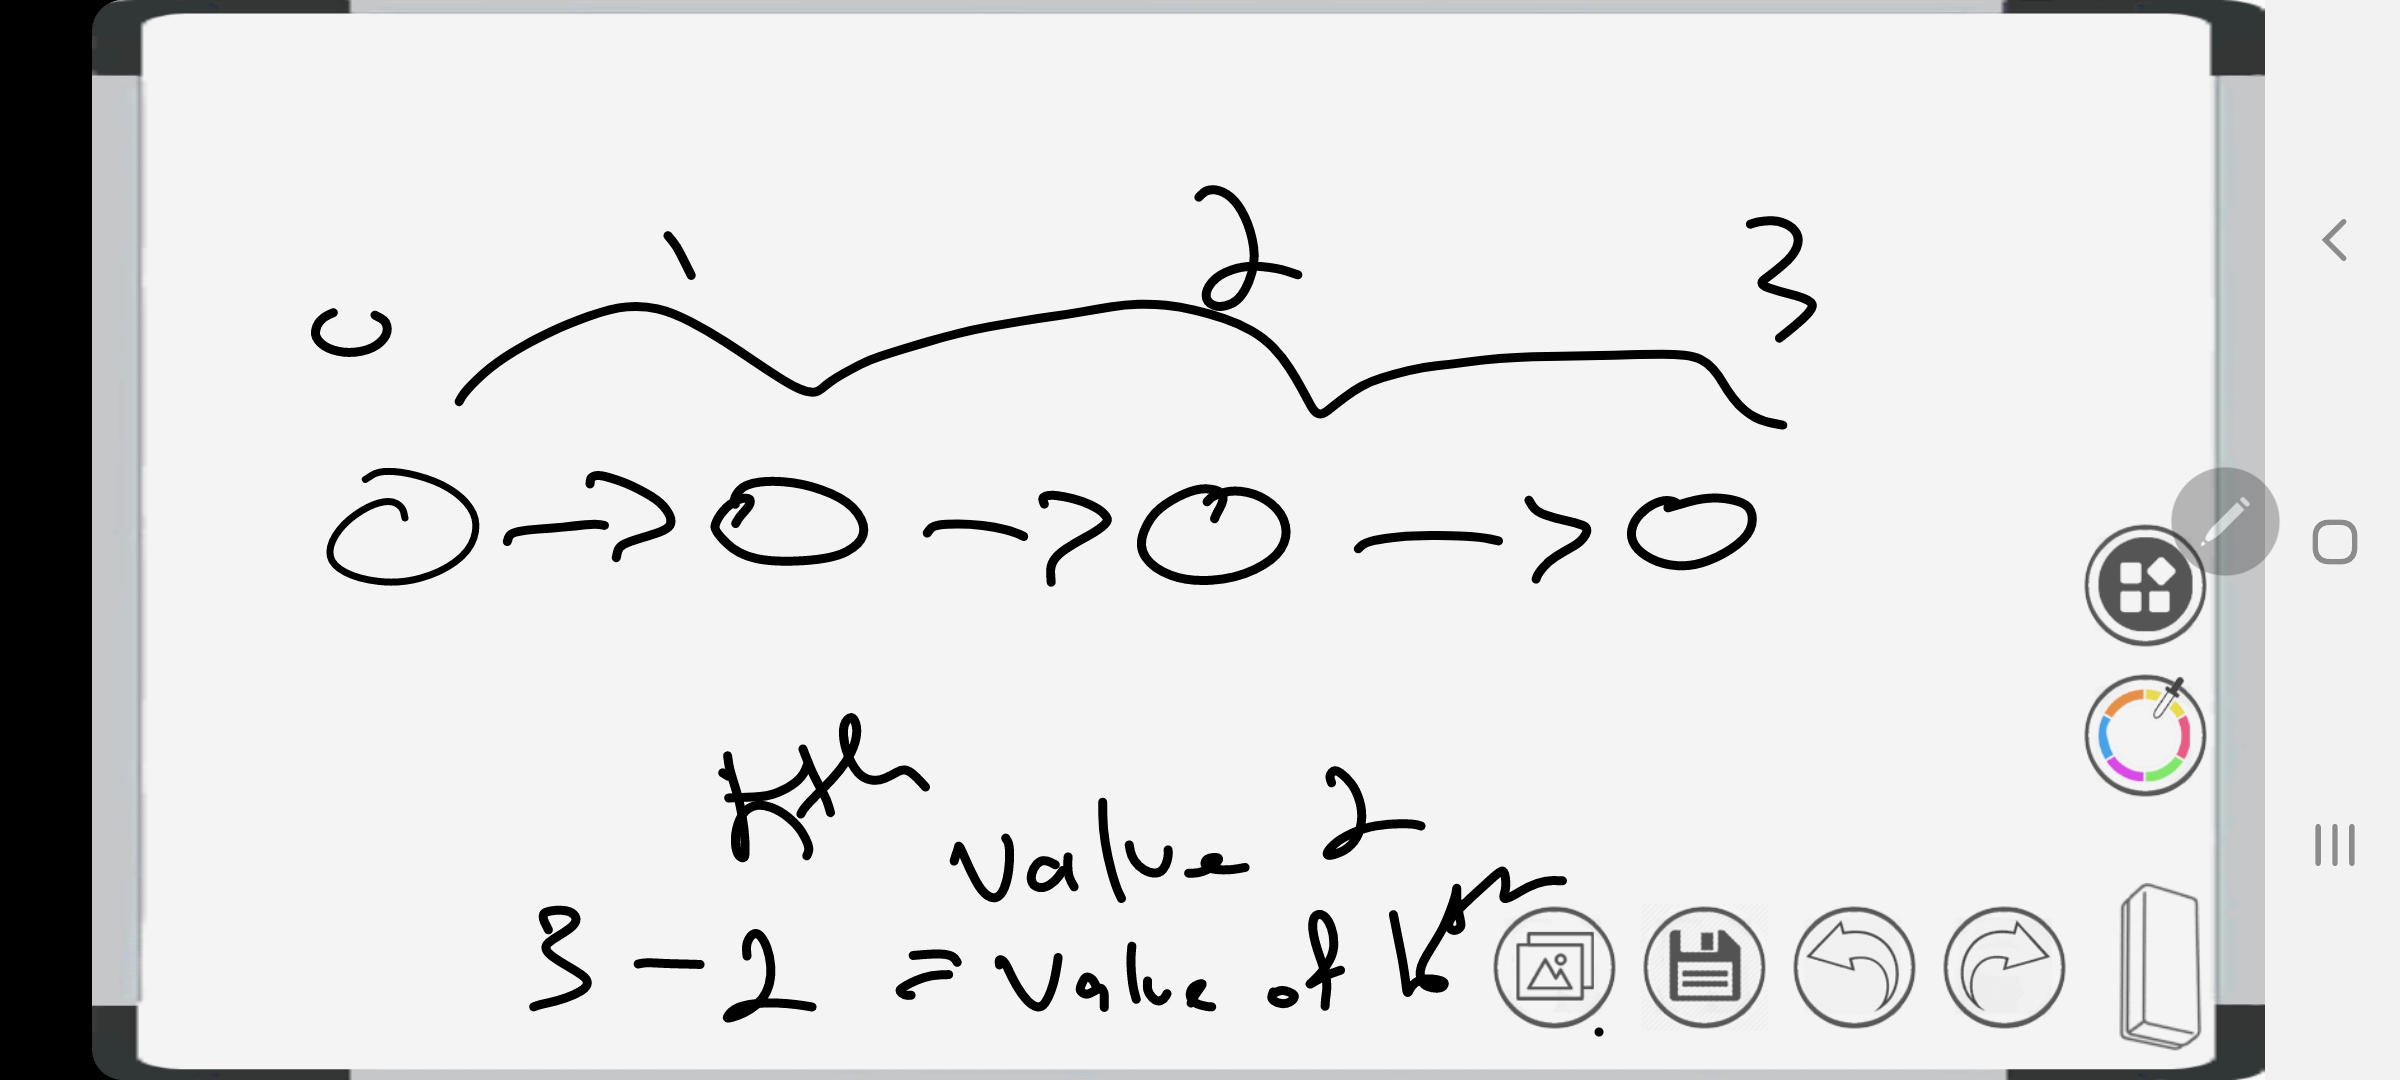 0 1 2 3
0 -> 0 -> 0 -> 0
Kth value 2
3 - 2 = value of Kth